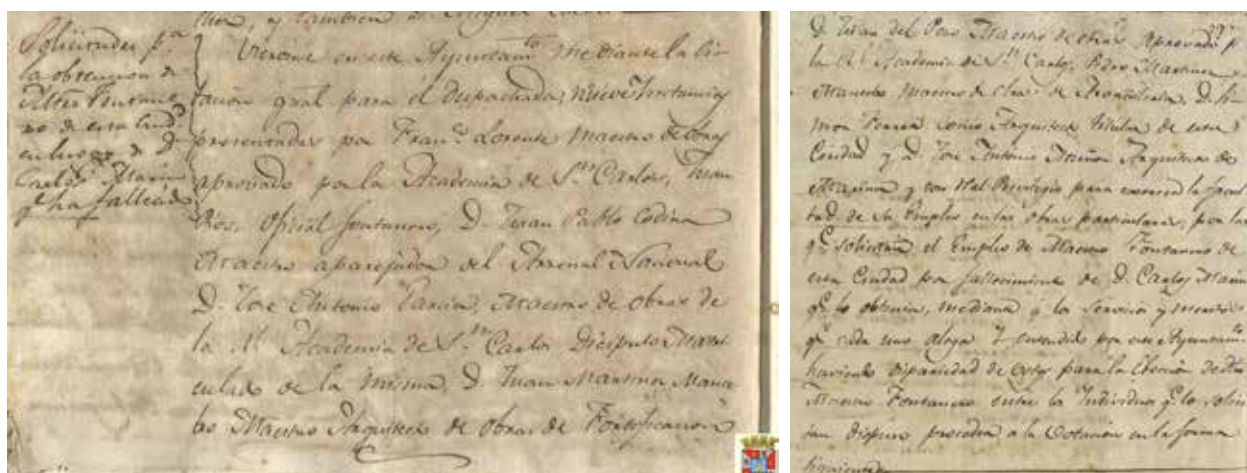 Solicitudes p.ª
la obtencion de
Mtro Fontane
ro de esta Ciud.
en lugar de D.
Carlos Marin
q.e ha fallecido
Vieronse en este Ayuntam.to mediante la Ci
tacion gral para el despachadas, nueve Instancias
presentadas por Fran.co Lorente Maestro de obras
aprovado por la Academia de S.n Carlos,
Ros, Oficial fontanero, D. Juan Pablo Codina
Maestro aparejador del Arsenal Nacional
D. Jose Antonio Garcia, Maestro de obras de
la R.l Academia de S.n Carlos Dicipulo Matri
culado de la misma, D. Juan Martinez Mana
bo Maestro Arquitecto de obras de Fortificacion
D. Juan del Poio Maestro de obras aprovado p.r
la R.l Academia de S.n Carlos, Pedro Martinez
Maestro de obras de D. Si
mon Ferrer como Arquitecto titular de esta
Ciudad y a D. Jose Antonio Arquitecto de
Marina y con R.l Privilegio para exercer la facul
tad de su Empleo en las obras particulares, por las
q.e solicitan el Empleo de Maestro Fontanero de
esta Ciudad por fallecimiento de D. Carlos Marin
q.e lo obtenia, mediante a los Servicios y meritos
q.e cada uno alega Y entendido por este Ayuntam.to
haviendo diparidad de votos para la Eleccion de
Maestro Fontanero entre los Individuos q.e lo solici
tan dispuso proceder a la Votacion en la forma
siguiente